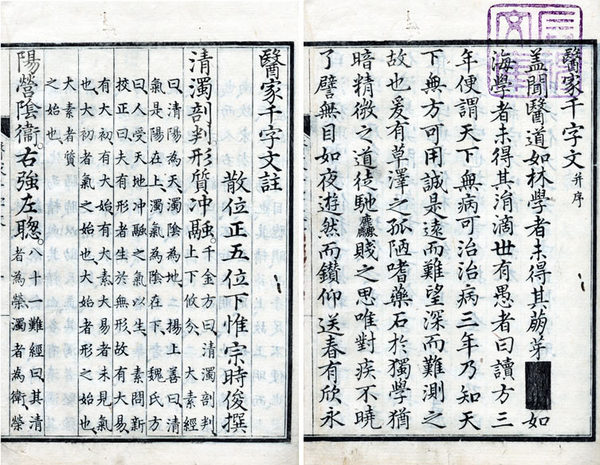 醫家千字文 并序
盖聞醫道如林學者未得其萠芽如
海學者未得其涓滴世有愚者曰讀方三
年便謂天下無病可治治病三年乃知天
下無方可用誠是遠而難望深而難測之
故也爰有草澤之孤陋嗜藥石於獨學猶
暗精微之道徒馳麤賤之思唯對疾不曉
了譬無目如夜遊然而鑽仰送春有欣永
醫家千字文註
散位正五位下惟宗時俊撰
清濁剖判形質冲融。千金方曰、清濁剖判、
上下攸分、 大素經
曰、清陽為天、濁陰為地、 楊上善曰、清
氣是陽在上、濁氣為陰在下、 魏氏方
曰、人受天地冲融之氣以生、 素問新
校正曰、夫有形者生於無形、故有大易、
有大初、有大始、有大素、大易者未見氣
也、大初者氣之始也、大始者形之始也、
大素者質
之始也、
陽營陰衛。右強左聰。八十一難經曰、其清
者為榮、濁者為衛、榮